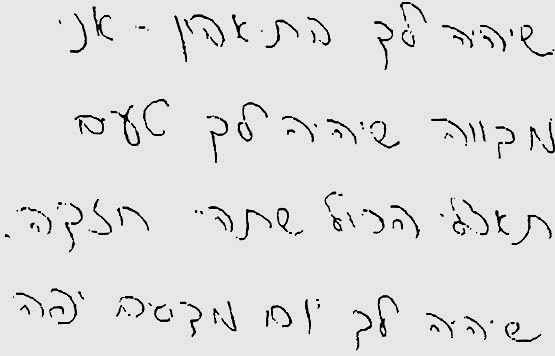 שיהיה לך בתאבון - אני
מקווה שיהיה לך טעם
תאכלי הכול שתהיי חזקה.
שיהיה לך יום מקסים יפה